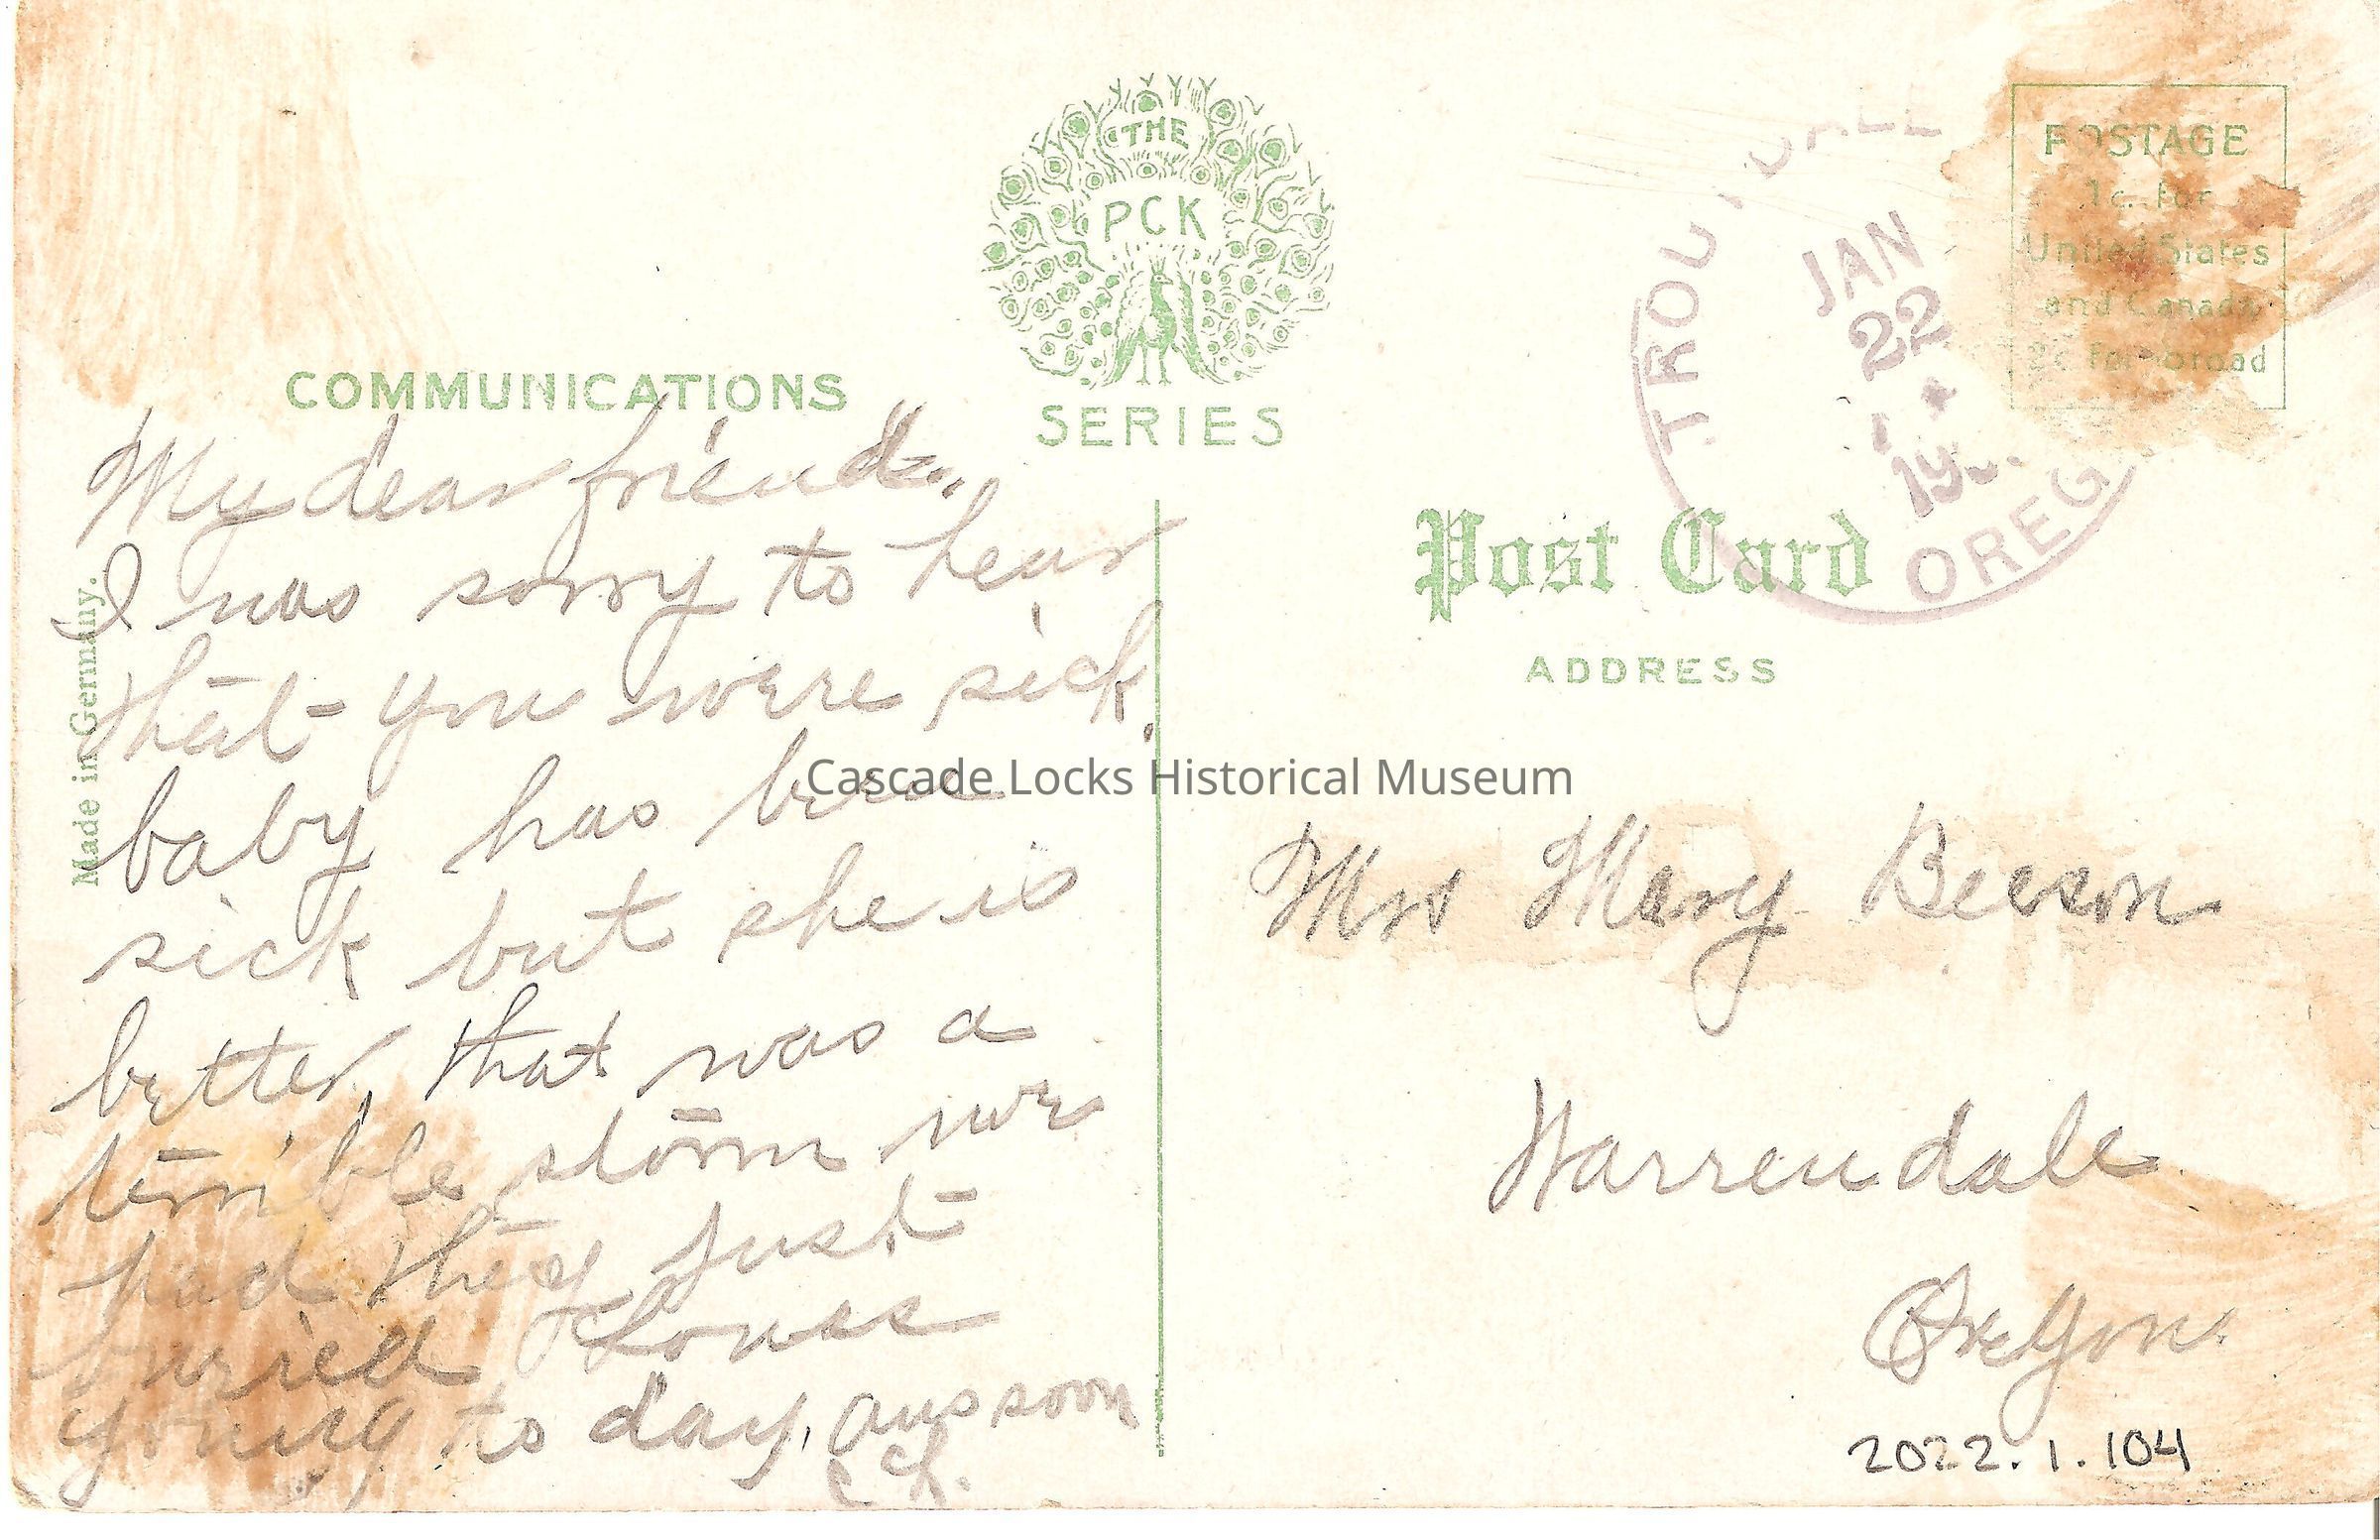 THE
PCK
SERIES
COMMUNICATIONS
TROUTDALE
JAN
22
OREG
POSTAGE
1c. for
United States
and Canada
2c for abroad
Post Card
ADDRESS
Made in Germany.
My dear friend..,
I was sorry to hear
that you were sick.
baby has been
sick but she is
better, that was a
terrible storm we
had they just
buried
young to day, ans soon
Cascade Locks Historical Museum
Mrs Mary Beeson
Warrendale
Oregon.
2022.1.104